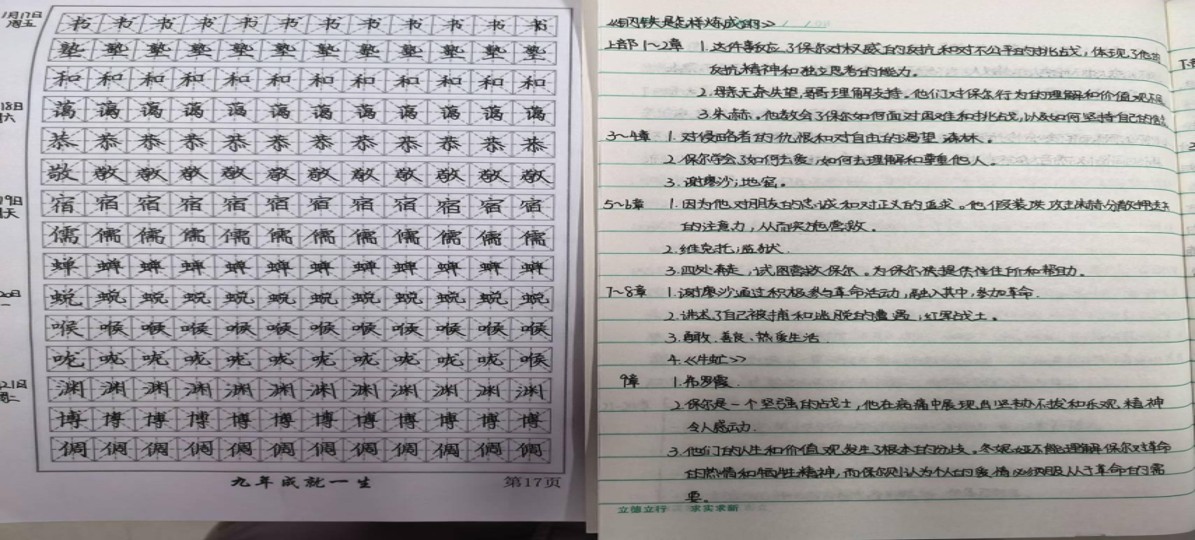 1月17日
周五
书书书书书书书书书书书书
塾塾塾塾塾塾塾塾塾塾塾塾
和和和和和和和和和和和和
蔼蔼蔼蔼蔼蔼蔼蔼蔼蔼蔼蔼
18日
六
恭恭恭恭恭恭恭恭恭恭恭恭
敬敬敬敬敬敬敬敬敬敬敬敬
19日
天
宿宿宿宿宿宿宿宿宿宿宿宿
儒儒儒儒儒儒儒儒儒儒儒儒
蝉蝉蝉蝉蝉蝉蝉蝉蝉蝉蝉蝉
20日
一
蜕蜕蜕蜕蜕蜕蜕蜕蜕蜕蜕蜕
喉喉喉喉喉喉喉喉喉喉喉喉
咙咙咙咙咙咙咙咙咙咙咙喉
21日
周二
渊渊渊渊渊渊渊渊渊渊渊渊
博博博博博博博博博博博博
倜倜倜倜倜倜倜倜倜倜倜倜
九年成就一生
第17页
《钢铁是怎样炼成的》
上部1~2章 1.这件事反应了保尔对权威的反抗和对不公平的挑战,体现了他的
反抗精神和独立思考的能力。
2.母亲无奈失望,哥哥理解支持。他们对保尔行为的理解和价值观不同
3.朱赫。他教会了保尔如何面对困难和挑战,以及如何坚持自己的信念
3~4章 1.对侵略者的仇恨和对自由的渴望 森林。
2.保尔学会了如何去爱,如何去理解和尊重他人。
3.谢廖沙;地窖。
5~6章 1.因为他对朋友的忠诚和对正义的追求。他假装 攻击 分散押送
的注意力,从而实施营救。
2.维克托;监狱.
3.四处奔走,试图营救保尔。为保尔 提供住所和帮助。
7~8章 1.谢廖沙通过积极参与革命活动,融入其中,参加革命.
2.讲述了自己被捕和逃脱的遭遇;红军战士。
3.勇敢.善良、热爱生活
4.《牛虻》
9章 1.布罗霞.
2.保尔是一个坚强的战士,他在病痛中展现出坚韧不拔和乐观精神
令人感动.
3.他们的人生和价值观发生了根本的分歧。冬妮娅不能理解保尔对革命
的热情和牺牲精神,而保尔则认为个人的爱情必须服从于革命的需
要。
立德立行 求实求新